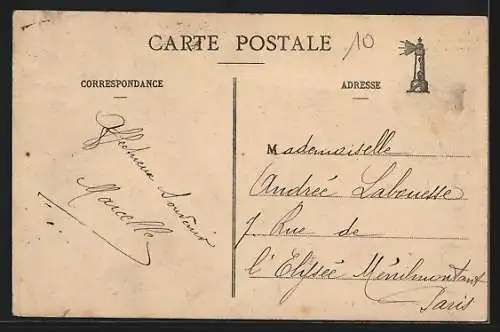 CARTE POSTALE
10
CORRESPONDANCE
ADRESSE
Affectueux Souvenir
Marcelle
Mademoiselle
Andrée Labouesse
7 Rue de
l'Elysée Ménilmontant
Paris